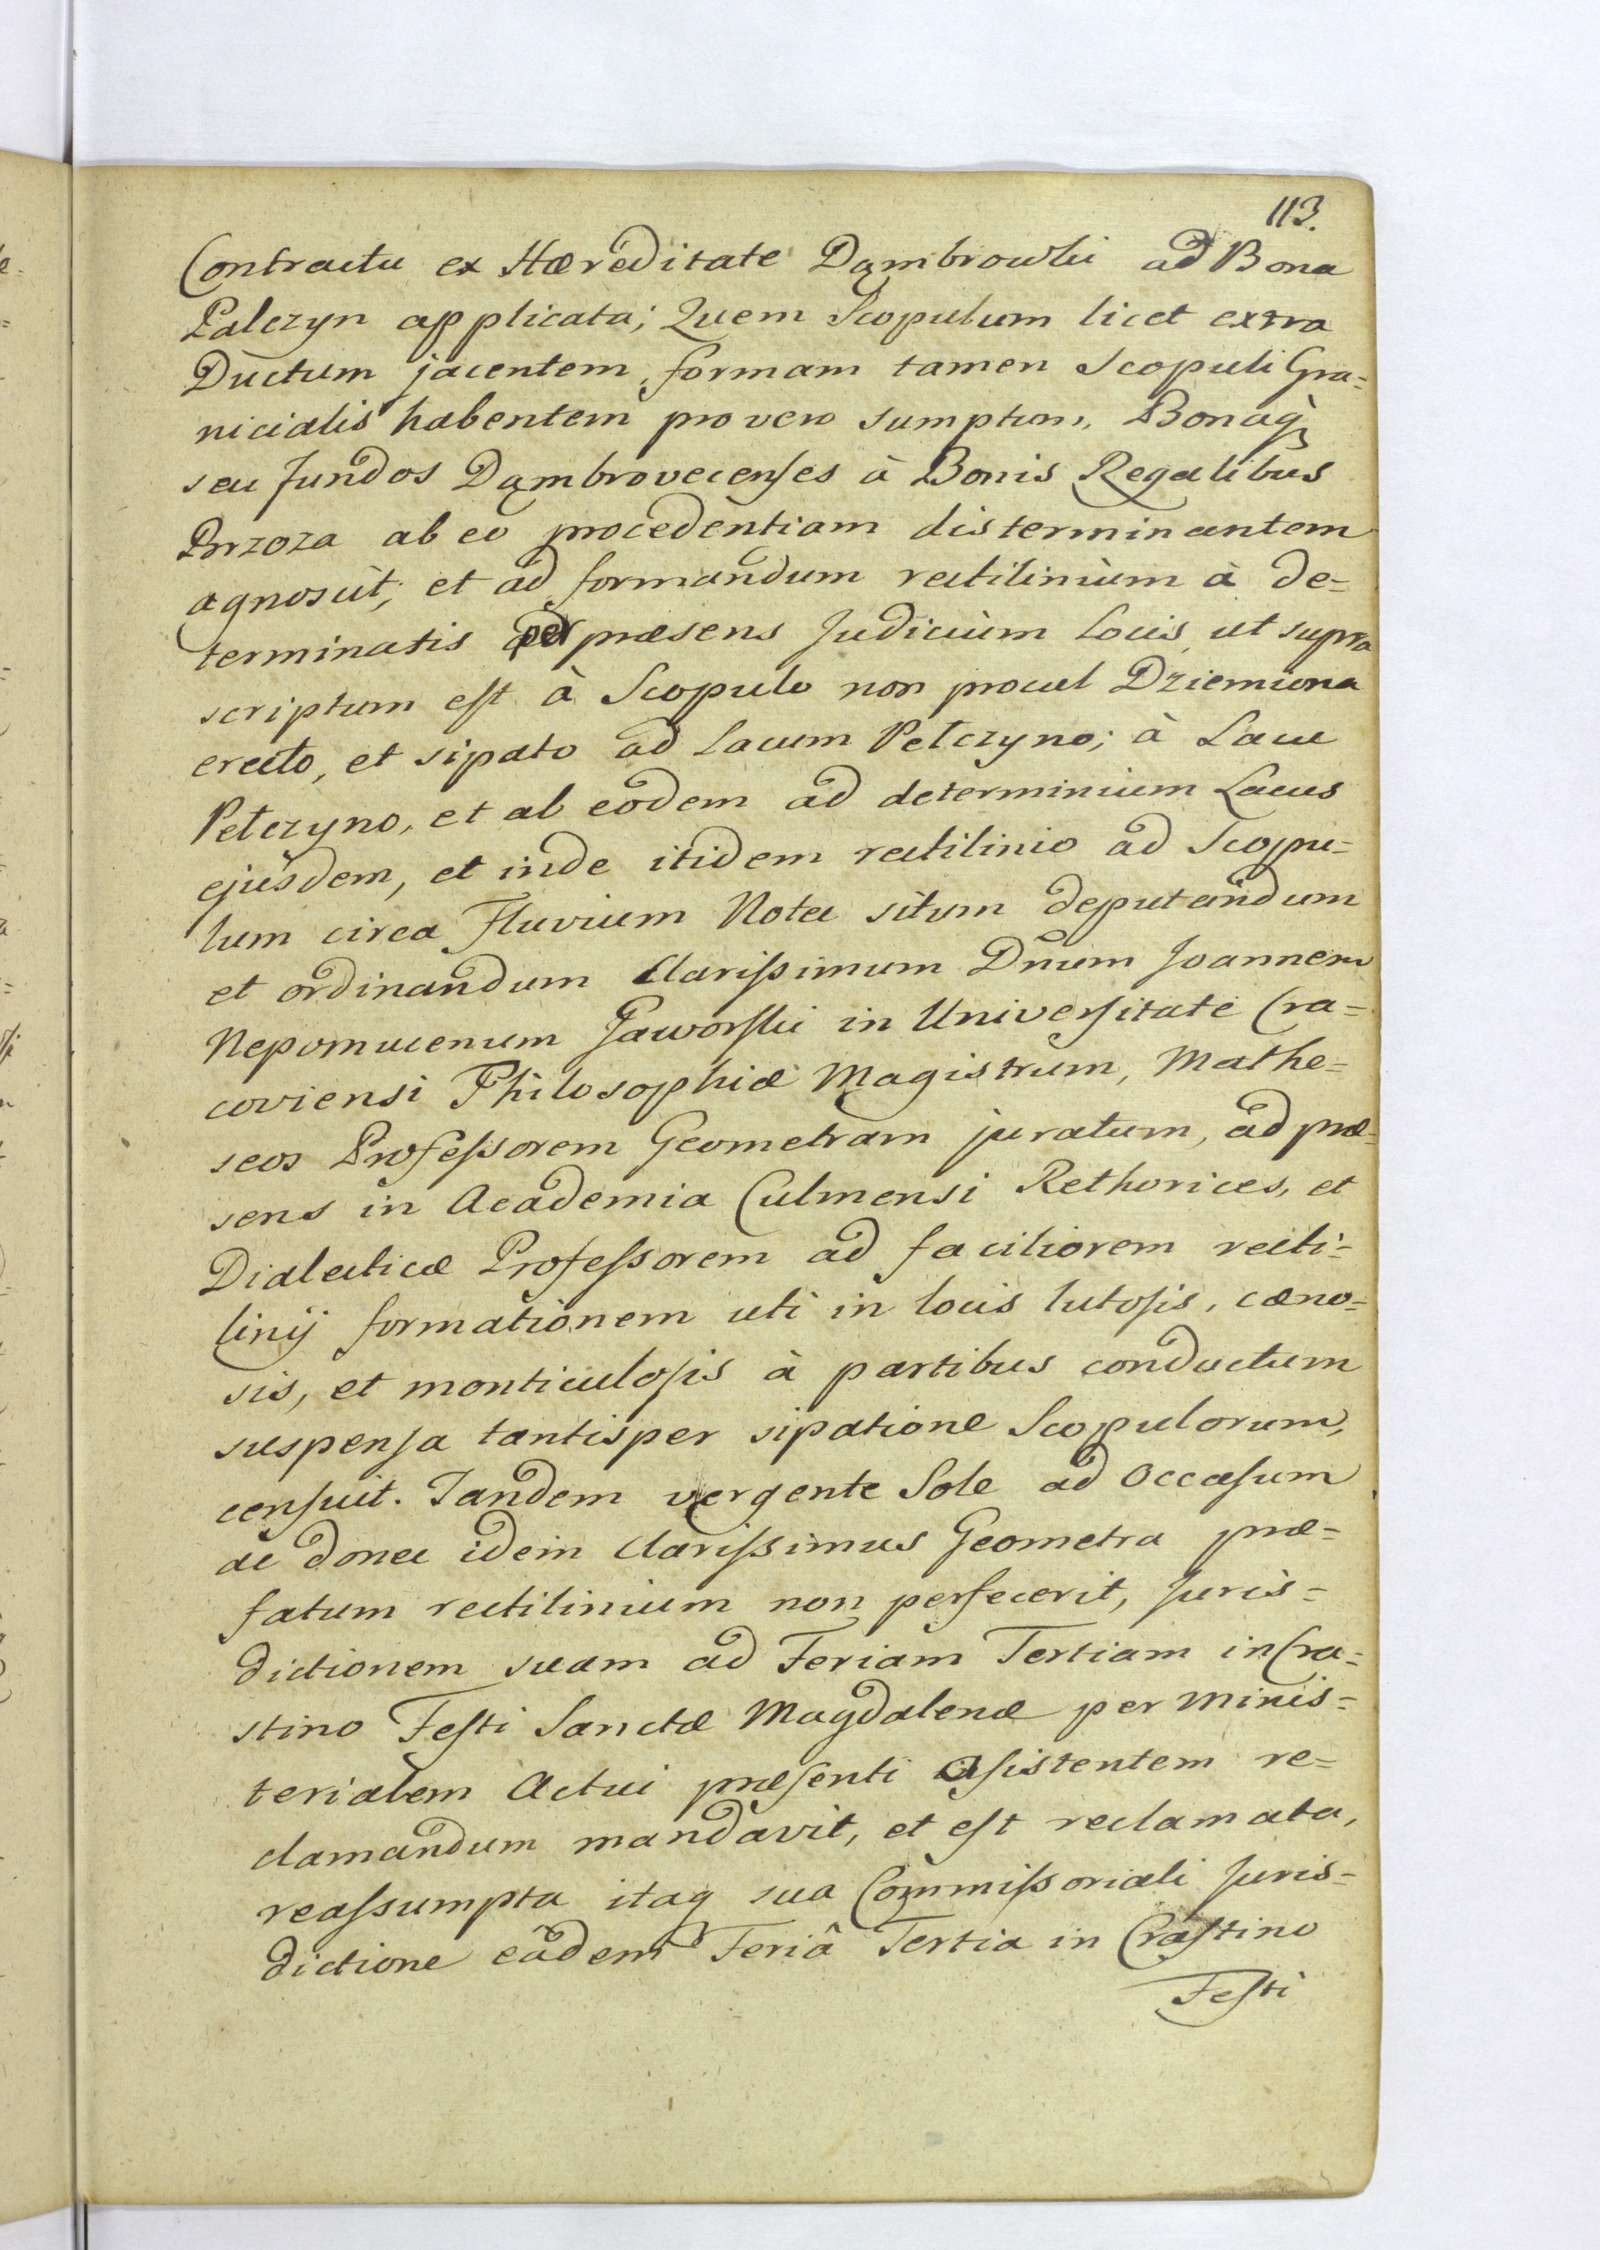 113.
Contractu ex Hæreditate Dąmbrowki ad Bona
Palczyn applicata; Quem Scopulum licet extra
Ductum jacentem, formam tamen Scopuli Gra=
nicialis habentem pro vero sumptum, Bonaq̀
seu fundos Dąmbrovecenses à Bonis Regalibus
Brzoza ab eo procedentiam disterminantem
agnoscit; et ad formandum rectilinium à de=
terminatis per præsens Judicium Locis, ut supra
scriptum est à Scopulo non procul Dziemiona
erecto, et sipato ad Lacum Petczyno; à Lacu
Petczyno, et ab eodem ad determinium Lacus
ejusdem, et inde itidem rectilinio ad Scopu=
lum circa Fluvium Noteć situm deputandum
et ordinandum Clarissimum Dnum Joannem
Nepomucenum Jaworski in Universitate Cra=
coviensi Philosophiæ Magistrum, Mathe=
seos Professorem Geometram juratum, ad præ=
sens in Academia Culmensi Rethorices, et
Dialecticæ Professorem ad faciliorem recti=
linij formationem uti in locis lutosis, cæno=
sis, et monticulosis à partibus conductum
suspensa tantisper sipatione Scopulorum,
censuit. Tandem vergente Sole ad Occasum
ac donec idem Clarissimus Geometra præ=
fatum rectilinium non perfecerit, Juris=
dictionem suam ad Feriam Tertiam in Cra=
stino Festi Sanctæ Magdalenæ per Minis=
terialem Actui præsenti assistentem re=
clamandum mandavit, et est reclamata,
reassumpta itaq sua Commissoriali Juris=
dictione eâdem Feriâ Tertia in Crastino
Festi